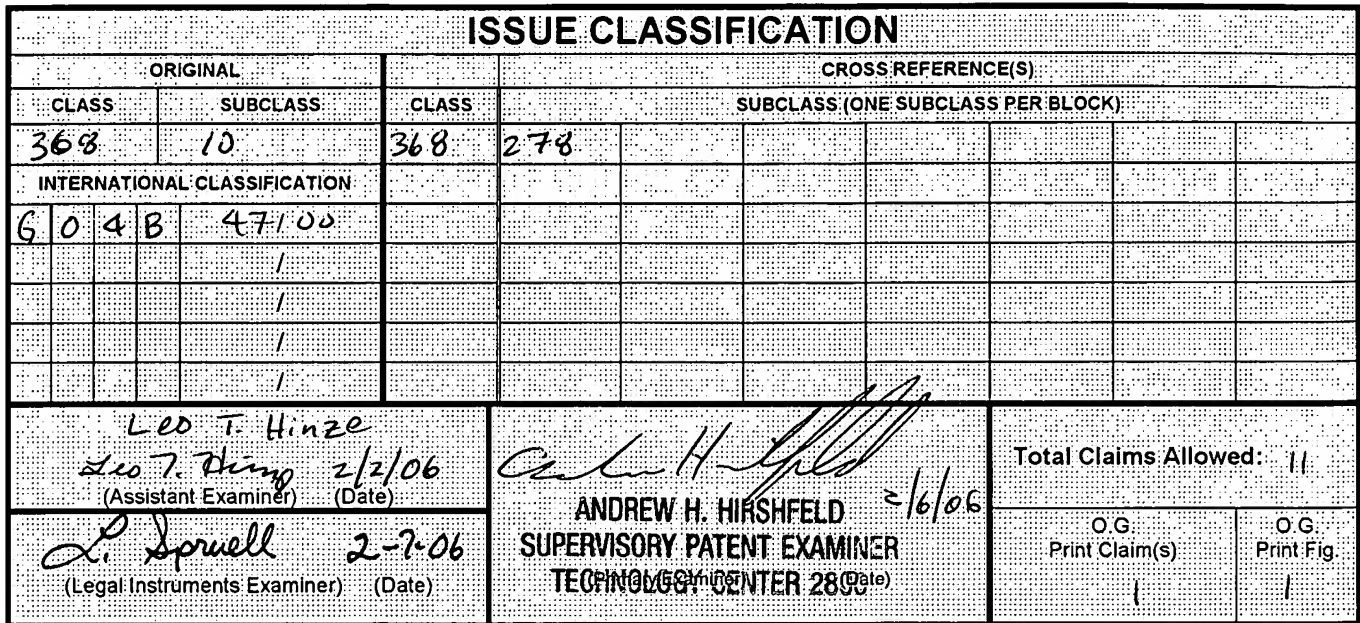 ISSUE CLASSIFICATION
ORIGINAL CROSS REFERENCE(S)
CLASS SUBCLASS CLASS SUBCLASS (ONE SUBCLASS PER BLOCK)
368 10 368 278
INTERNATIONAL CLASSIFICATION
G 0 4 B 47/00
/
/
/
/
Leo T. Hinze
Leo T. Hinze 2/2/06
(Assistant Examiner) (Date)
L. Spruell 2-7-06
(Legal Instruments Examiner) (Date)
2/6/06
ANDREW H. HIRSHFELD
SUPERVISORY PATENT EXAMINER
TECHNOLOGY CENTER 2800
(Primary Examiner) (Date)
Total Claims Allowed: 11
O.G. Print Claim(s) O.G. Print Fig.
1 1